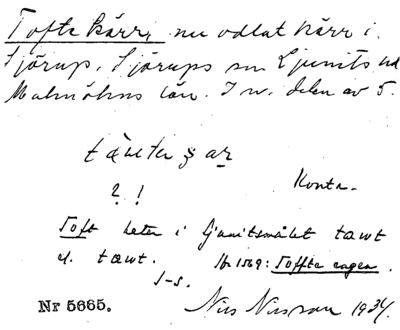 Tofta kärr, nu odlat kärr i
Sjörup, Sjörups sn Ljunits hd
Malmöhus län. I n. delen av S.
? !
Konta.
Toft heter i Ljunitsmålet tawt
el. tæwt. Jb 1569: Toffte eagen.
J-S.
Nr 5665.
Nils Nilsson 1934.